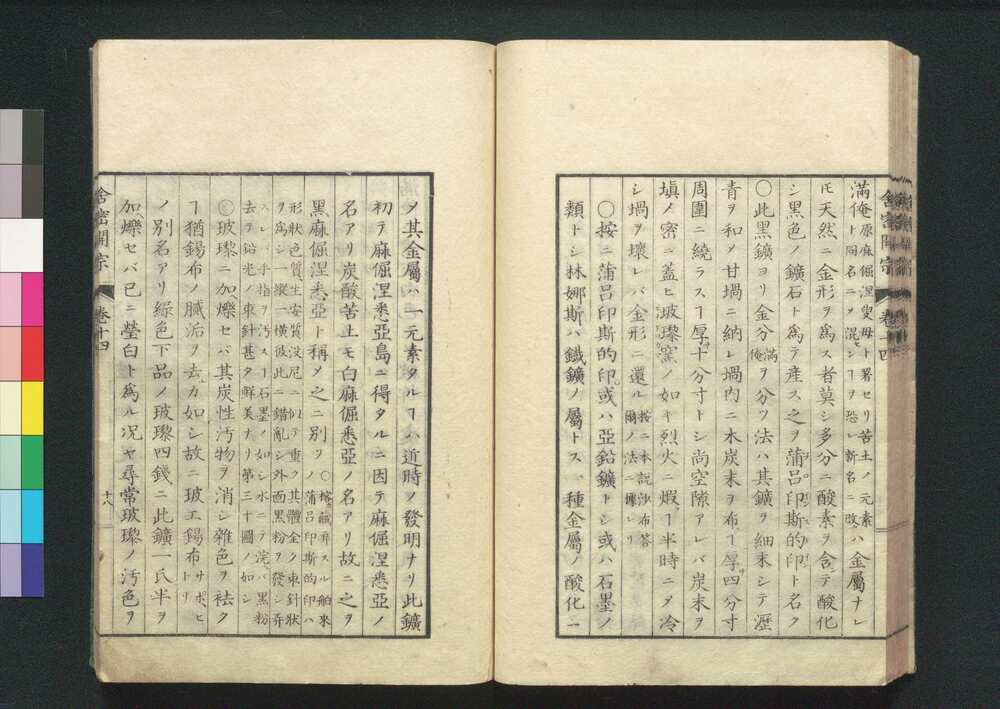 満俺ト同名ニメ混シ一ヲ恐レ新名ニ改ハ金屬ナレ
原麻倔涅叟母ト署セリ苦土ノ元素
𪜈天然ニ金形ヲ爲ス者莫シ多分ニ酸素ヲ含テ酸化
シ黒色ノ鑛石ト爲テ産ス之ヲ蒲呂印斯的印ト名ク
〇此黒鑛ヨリ金分満俺ヲ分ツ法ハ其鑛ヲ細末シテ瀝
青ヲ和メ甘堝ニ納レ堝内ニ木炭末ヲ布ヿ厚四分寸
周圍ニ繞ラスヿ厚十分寸トシ尚空隙アレバ炭末ヲ
塡メ密ニ蓋ヒ玻瓈窯ノ如キ烈火ニ煆ヿ半時ニメ冷
シ堝ヲ壞レバ金形ニ還ル按ニ本説沙布答
爾ノ法ニ據レリ
〇按ニ蒲呂印斯的印或ハ亞鉛鑛トシ或ハ石墨ノ
類トシ林娜斯ハ鐵鑛ノ屬トス一種金屬ノ酸化ニ
舍密開宗
卷十四
メ其金屬ハ一元素タルヿハ近時ノ發明ナリ此鑛
初ヲ麻倔涅悉亞島ニ得タルニ因テ麻倔涅悉亞ノ
名アリ炭酸苦土モ白麻倔悉亞ノ名アリ故ニ之ヲ
黒麻倔涅悉亞ト稱メ之ニ別ツ
〇榕菴舶來
ノ蒲呂印斯的印ハ
形狀色質生安質没尼ニ似テ重ク其體全ク束針狀
ヲ爲シ一縱一横彼此ニ錯亂シ外面黒粉ヲ發シ弄
スレバ手指ヲ汚スヿ石墨ノ如シ水ニテ浣ヘバ黒粉
去テ鉛光ノ束針甚タ鮮美ナリ第三十圖ノ如シ
〇玻瓈ニ加爍セバ其炭性汚物ヲ消シ雜色ヲ祛ク
ヿ猶錫布ノ膩泥ヲ去カ如シ故ニ玻工錫布トリ
サボヒ
ノ別名アリ綠色下品ノ玻瓈四錢ニ此鑛一氏半ヲ
加爍セバ已ニ瑩白ト爲ル况ヤ尋常玻瓈ノ汚色ヲ
舍密開宗
卷十四
十八